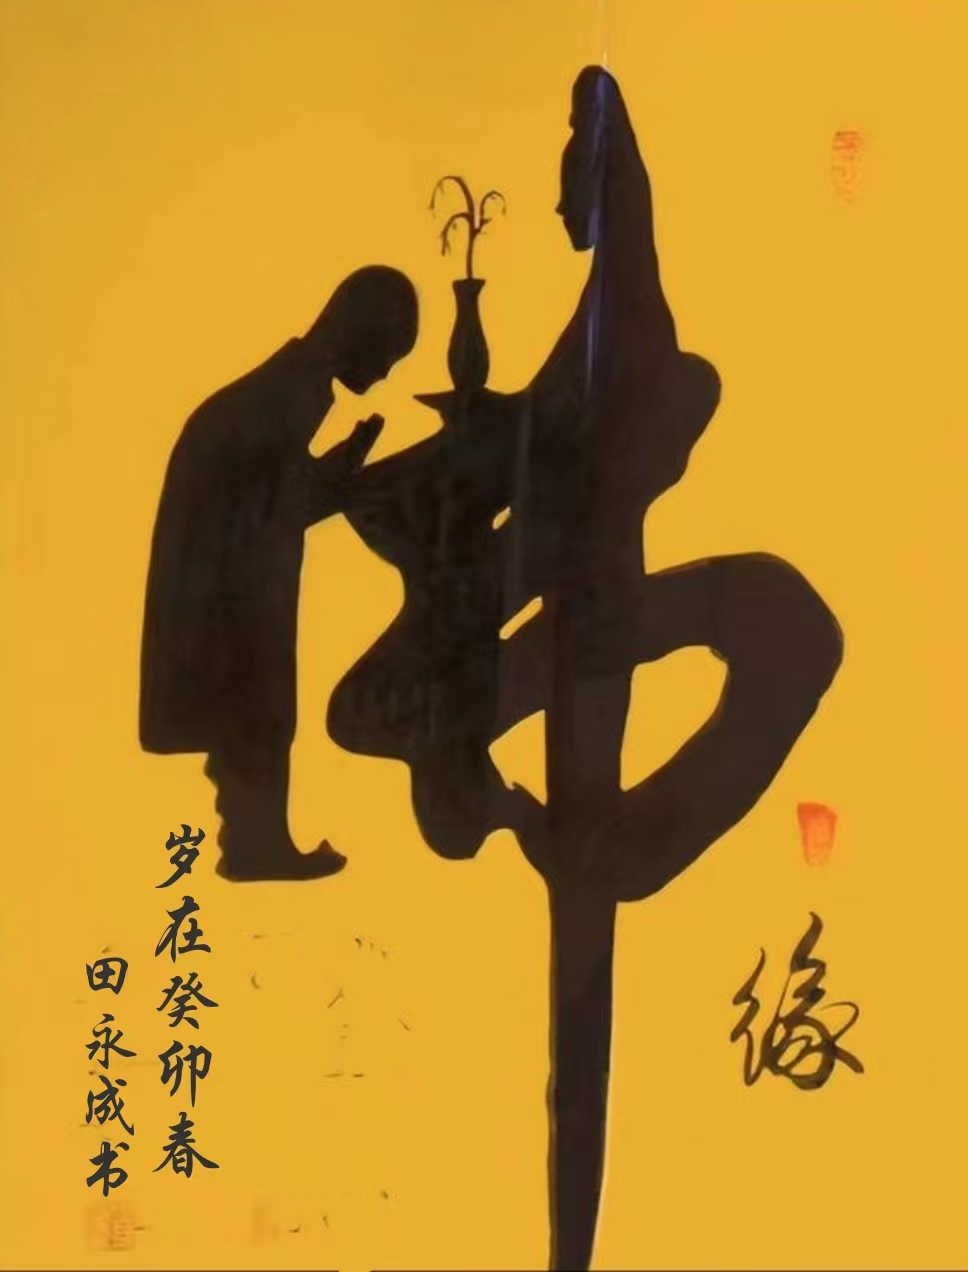 佛
缘
岁在癸卯春
田永成书